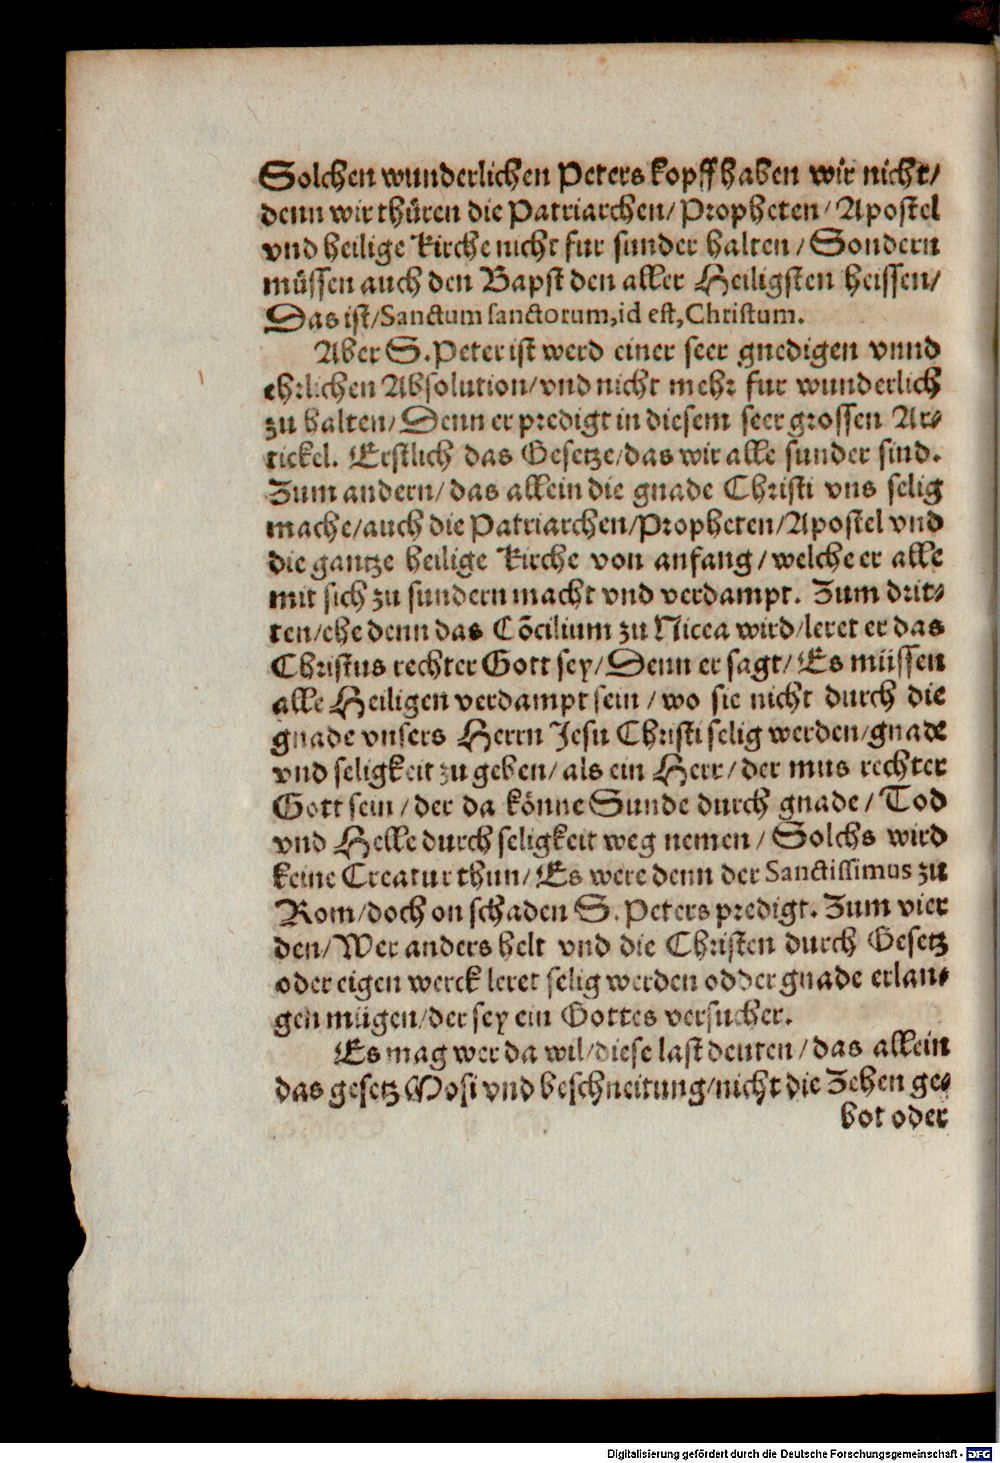 Solchen wunderlichen Peters kopff haben wir nicht/
denn wir thüren die Patriarchen/ Propheten/ Apostel
vnd heilige Kirche nicht fur sunder halten/ Sondern
müssen auch den Bapst den aller Heiligsten heissen/
Das ist/ Sanctum sanctorum, id est, Christum.
Aber S. Peter ist werd einer seer gnedigen vnnd
ehrlichen Absolution/ vnd nicht mehr fur wunderlich
zu halten/ Denn er predigt in diesem seer grossen Ar-
tickel. Erstlich das Gesetze/ das wir alle sunder sind.
Zum andern/ das allein die gnade Christi vns selig
mache/ auch die Patriarchen/ Propheten/ Apostel vnd
die gantze heilige Kirche von anfang/ welche er alle
mit sich zu sundern macht vnd verdampt. Zum drit-
ten/ ehe denn das Cōcilium zu Nicea wird/ leret er das
Christus rechter Gott sey/ Denn er sagt/ Es müssen
alle Heiligen verdampt sein/ wo sie nicht durch die
gnade vnsers Herrn Jesu Christi selig werden/ gnade
vnd seligkeit zu geben/ als ein Herr/ der mus rechter
Gott sein/ der da könne Sunde durch gnade/ Tod
vnd Helle durch seligkeit weg nemen/ Solchs wird
keine Creatur thun/ Es were denn der Sanctissimus zu
Rom/ doch on schaden S. Peters predigt. Zum vier
den/ Wer anders helt vnd die Christen durch Gesetz
oder eigen werck leret selig werden odder gnade erlan-
gen mügen/ der sey ein Gottes versucher.
Es mag wer da wil/ diese last deuten/ das allein
das gesetz Mosi vnd beschneitung/ nicht die Zehen ge-
bot oder
Digitalisierung gefördert durch die Deutsche Forschungsgemeinschaft - DFG